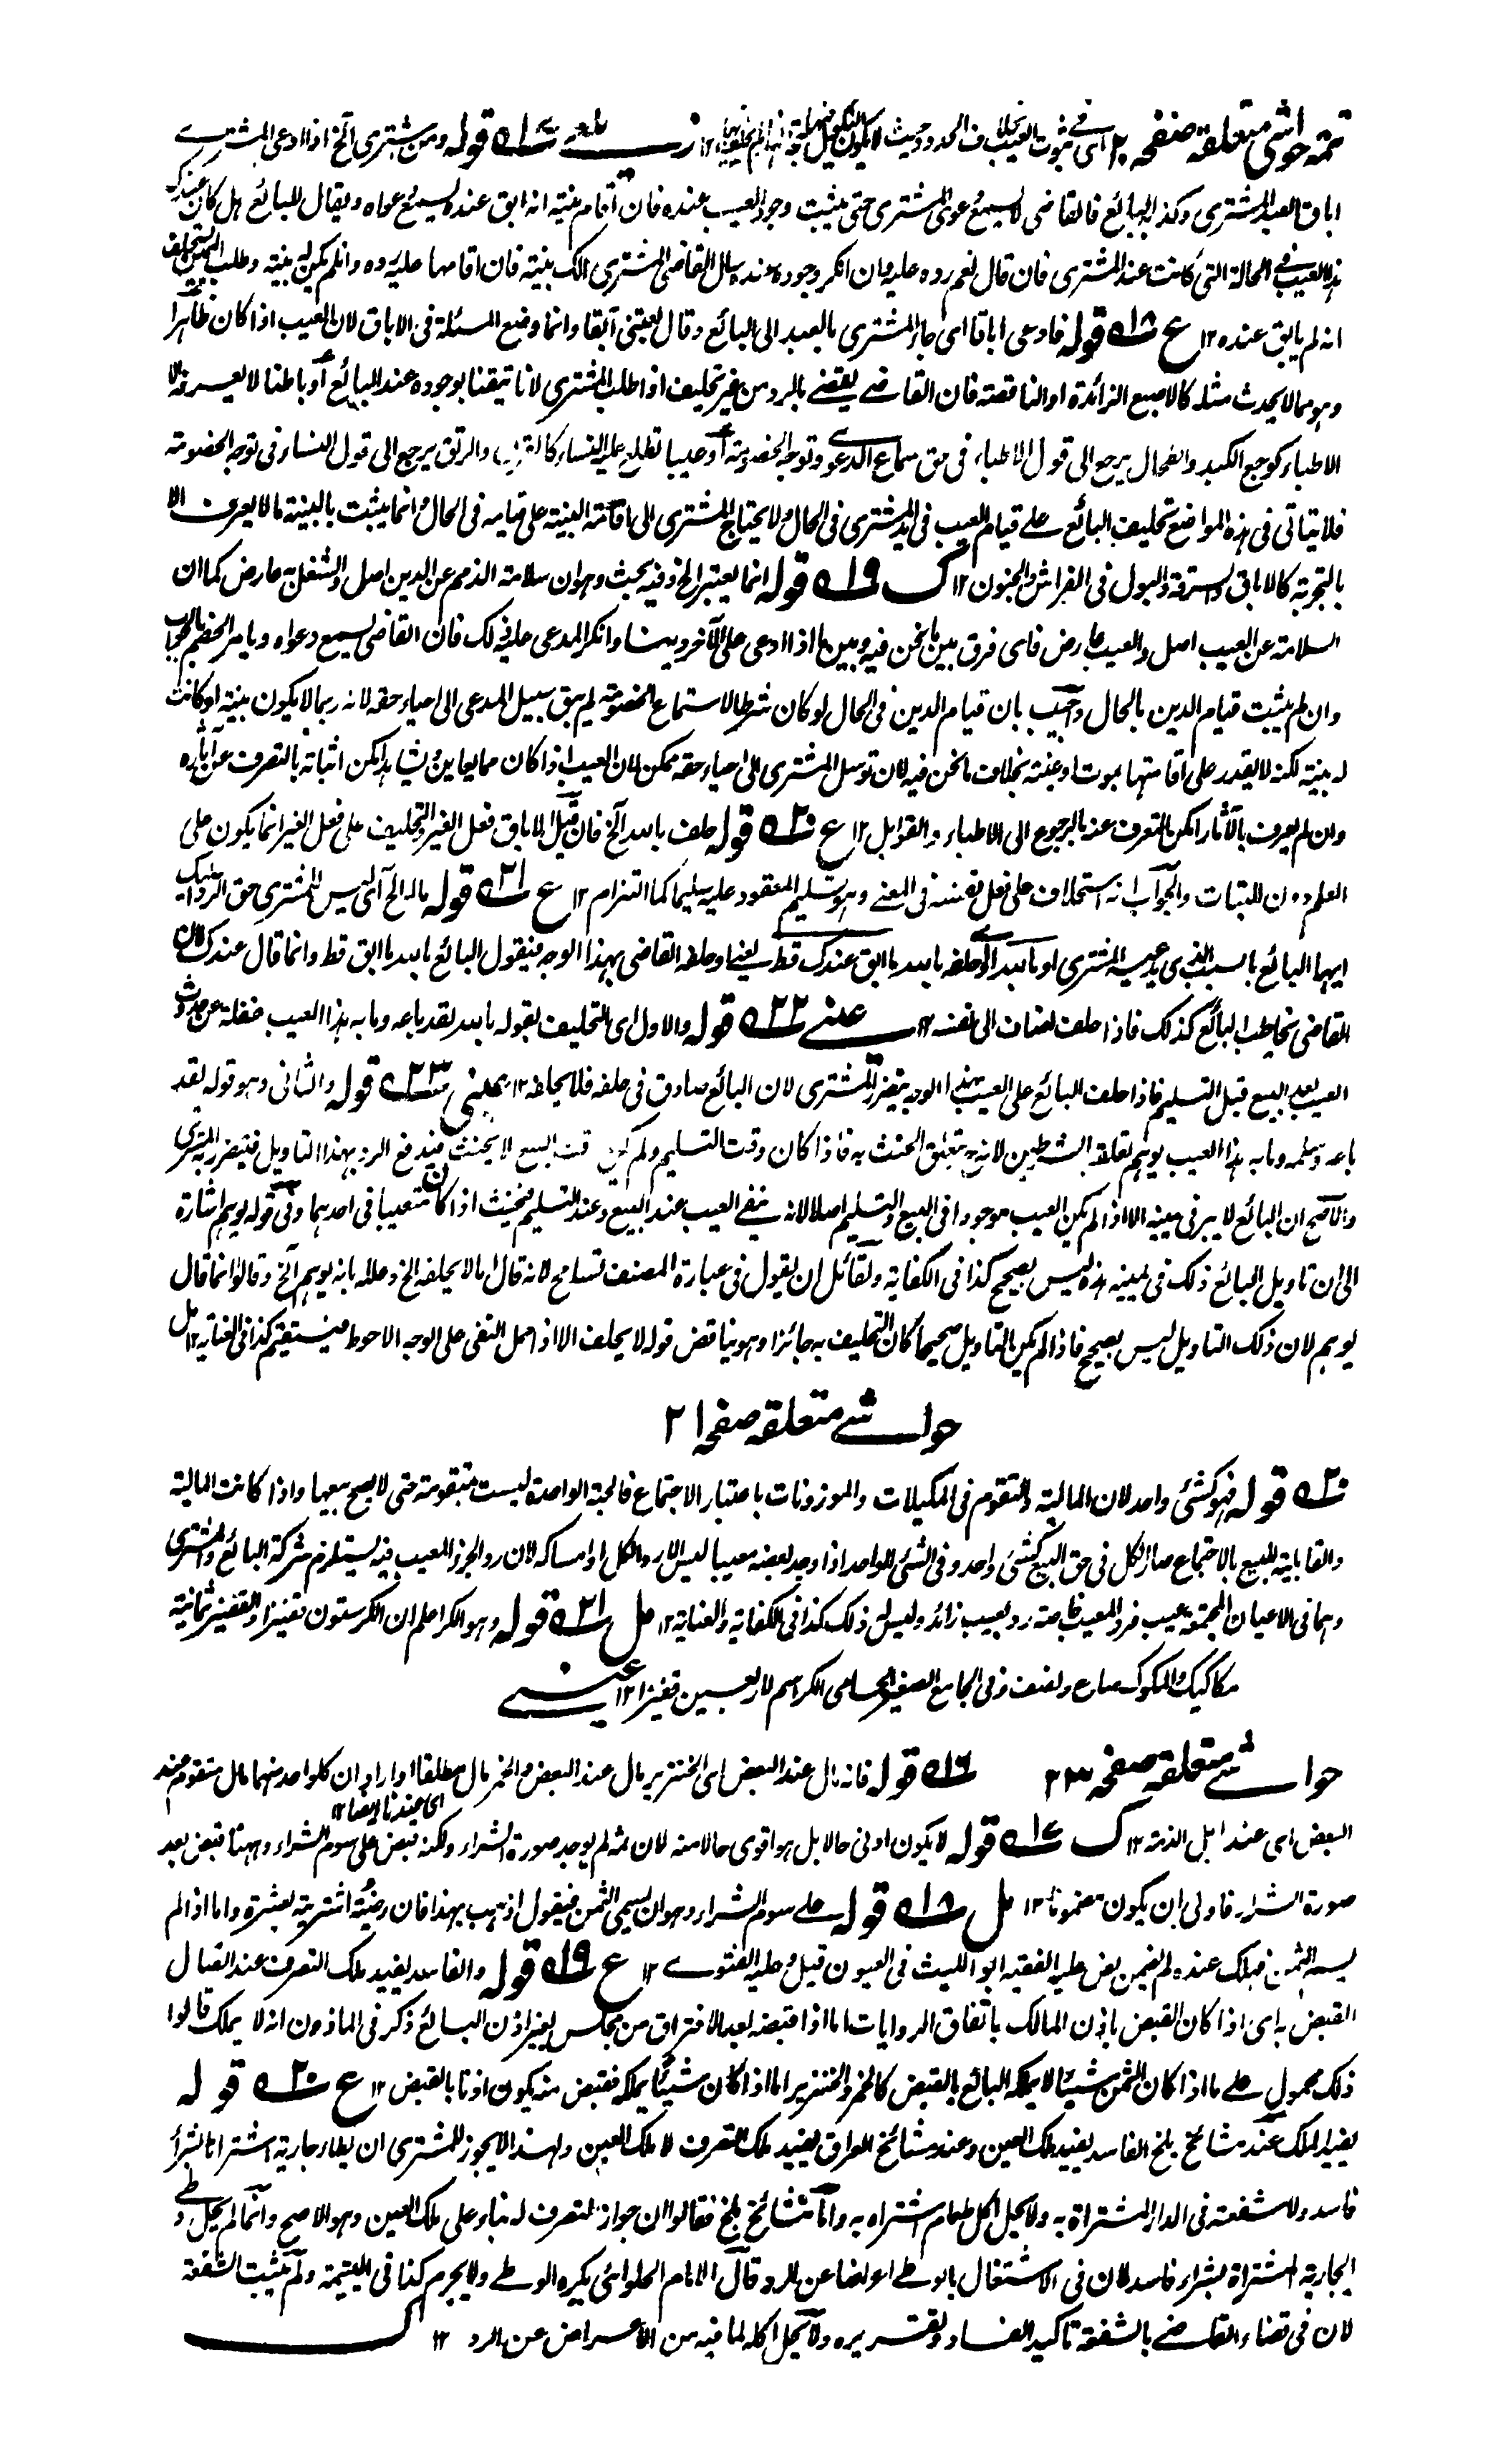 تتمه حواشى متعلقه صفحه ٢٠ اى فى ثبوت العيب بخلاف الحدود حيث لا يكون ١٢ ز ١٧ قوله ومن اشترى الخ اذا ادعى المشترى
اباق العبد المشترى وكذبه البائع فالقاضى لا يسمع دعوى المشترى حتى يثبت وجود العيب عنده فان اقام بينة انه ابق عنده يسمع دعواه ويقال للبائع هل كان عندك
هذا العيب فى الحالة التى كانت عند المشترى فان قال نعم رده عليه وان انكر وجوده عنده سال القاضى المشترى الك بينة فان اقامها عليه رده وان لم يكن له بينة وطلب اليمين يستحلف
انه لم يابق عنده ١٢ ع ١٨ قوله فادعى اباقا اى جاء المشترى بالعبد الى البائع وقال بعتنى آبقا وانما وضع المسئلة فى الاباق لان العيب اذا كان ظاهرا
وهو مما لا يحدث مثله كالاصبع الزائدة او الناقصة فان القاضى يقضى بالرد من غير تحليف اذا طلب المشترى لانا تيقنا بوجوده عند البائع او باطنا لا يعرفه الا
الاطباء كوجع الكبد والطحال يرجع الى قول الاطباء فى حق سماع الدعوى وتوجه الخصومة او عيبا تطلع عليه النساء كالقرن والرتق يرجع الى قول النساء فى توجه الخصومة
فلا يتاتى فى هذه المواضع تحليف البائع على قيام العيب فى يد المشترى فى الحال ولا يحتاج المشترى الى اقامة البينة على قيامه فى الحال وانما يثبت بالبينة ما لا يعرف الا
بالتجربة كالاباق والسرقة والبول فى الفراش والجنون ١٢ ك ١٩ قوله انما يعتبر الخ وفيه بحث وهو ان سلامة الذمم عن الدين اصل والشغل به عارض كما ان
السلامة عن العيب اصل والعيب عارض فاى فرق بين ما نحن فيه وبين ما اذا ادعى على الآخر دينا وانكر المدعى عليه ذلك فان القاضى يسمع دعواه ويامر الخصم بالجواب
وان لم يثبت قيام الدين بالحال واجيب بان قيام الدين فى الحال لو كان شرطا لاستماع الخصومة لم يبق سبيل المدعى الى احياء حقه لانه ربما لا يكون بينة او كانت
له بينة لكنه لا يقدر على اقامتها بموت او غيبة بخلاف ما نحن فيه لان توسل المشترى الى احياء حقه ممكن لان العيب اذا كان مما يعاين ويشاهد امكن اثباته بالتعرف عن آثاره
وان لم يعرف بالآثار امكن بالتعرف عنه بالرجوع الى الاطباء والقوابل ١٢ ع ٢٠ قوله حلف بالله الخ فان قيل الاباق فعل الغير والتحليف على فعل الغير انما يكون على
العلم دون البتات والجواب انه استحلاف على فعل نفسه فى المعنى وهو تسليم المعقود عليه سليما كما التزام ١٢ ع ٢١ قوله ماله الخ اى ليس للمشترى حق الرد عليك
ايها البائع بالسبب الذى يدعيه المشترى او بالله الخ وحلفه بالله ما ابق عندك قط يعنى او حلفه القاضى بهذا الوجه فيقول البائع بالله ما ابق قط وانما قال عندك لان
القاضى يخاطب البائع كذلك فاذا حلف يضاف الى نفسه ١٢ عينى ٢٢ قوله والاول اى التحليف بقوله بالله لقد باعه وما به هذا العيب غفلة عن حدوث
العيب بعد البيع قبل التسليم فاذا حلف البائع على العيب بهذا الوجه يتضرر المشترى لان البائع صادق فى حلفه فلا يحلفه ١٢ عينى ٢٣ قوله والثانى وهو قوله لقد
باعه وسلمه وما به هذا العيب يوهم تعلقه بالشرطين لانه يتعلق الحنث به فاذا كان وقت التسليم ولم يكن وقت البيع لا يحنث فيندفع الرد بهذا التاويل فيتضرر به المشترى
والاصح ان البائع لا يبر فى يمينه الا اذا لم يكن العيب موجودا فى البيع والتسليم اصلا لانه ينفى العيب عند البيع وعند التسليم فيحنث اذا كان متعيبا فى احدهما وفى قوله يوهم اشارة
الى ان تاويل البائع ذلك فى يمينه هذه ليس بصحيح كذا فى الكفاية ولقائل ان يقول فى عبارة المصنف تسامح لانه قال اما لا يحلفه الخ وعلله بانه يوهم الخ وقالوا انما قال
يوهم لان ذلك التاويل ليس بصحيح فاذا لم يكن التاويل صحيحا كان التحليف به جائزا وهو يناقض قوله لا يحلف الا اذا حمل النفى على الوجه الاحوط فيستقيم كذا فى العناية ١٢ مل
حواشى متعلقه صفحه ٢١
٢٠ قوله فهو كشئ واحد لان المالية والتقوم فى المكيلات والموزونات باعتبار الاجتماع فالحبة الواحدة ليست متقومة حتى لا يصح بيعها واذا كانت المالية
والقابلية للبيع بالاجتماع صار الكل فى حق البيع كشئ واحد وفى الشئ الواحد اذا وجد بعضه معيبا ليس الا رد الكل او امساكه لان رد الجزء المعيب فيه يستلزم شركة البائع والمشترى
وهما فى الاعيان المجتمعة عيب فرد المعيب خاصة رد بعيب زائد وليس له ذلك كذا فى الكفاية والعناية ١٢ مل ٢١ قوله وهو الكر اعلم ان الكر ستون قفيزا والقفيز ثمانية
مكاكيك والمكوك صاع ونصف وفى الجامع الصغير الحسامى الكر اسم لاربعين قفيزا ١٢ عينى
حواشى متعلقه صفحه ٢٣ ١٦ قوله فانه مال عند البعض اى الخنزير مال عند البعض والخمر مال مطلقا او اراد ان كلا واحد منهما مال متقوم عند
اى عندنا ايضا ١٢
البعض اى عند اهل الذمة ١٢ ك ١٧ قوله لا يكون ادنى حالا بل هو اقوى حالا منه لان ثمه لم يوجد صورة الشراء ولكنه قبض على سوم الشراء وههنا قبض بعد
صورة الشراء فاولى ان يكون مضمونا ١٢ مل ١٨ قوله على سوم الشراء وهو ان يسمى الثمن فيقول اذهب بهذا فان رضيته اشتريته بعشرة واما اذا لم
يسم الثمن فهلك عنده لم يضمن نص عليه الفقيه ابو الليث فى العيون قيل وعليه الفتوى ١٢ ع ١٩ قوله والفاسد يفيد ملك التصرف عند اتصال
القبض به اى اذا كان القبض باذن المالك باتفاق الروايات اما اذا قبضه بعد الافتراق من مجلس بغير اذن البائع ذكر فى الماذون انه لا يملك قالوا
ذلك محمول على ما اذا كان الثمن شيئا لا يملكه البائع بالقبض كالخمر والخنزير اما اذا كان شيئا يملكه فقبض منه يكون اذنا بالقبض ١٢ ع ٢٠ قوله
يفيد الملك عند مشائخ بلخ الفاسد يفيد ملك العين وعند مشائخ العراق يفيد ملك التصرف لا ملك العين ولهذا لا يجوز للمشترى ان يطا جارية اشتراها بشراء
فاسد ولا شفعة فى الدار المشتراة به ولا يحل اكل طعام اشتراه به واما مشائخ بلخ فقالوا ان جواز التصرف له بناء على ملك العين وهو الاصح وانما لم يحل وطى
الجارية المشتراة بشراء فاسد لان فى الاشتغال بالوطى اعراضا عن الرد وقال الامام الحلوائى يكره الوطى ولا يحرم كذا فى اليتيمة ولم يثبت الشفعة
لان فى قضاء القاضى بالشفعة تاكيد الفساد وتقريره ولا يحل اكله لما فيه من الاعراض عن الرد ١٢ ك